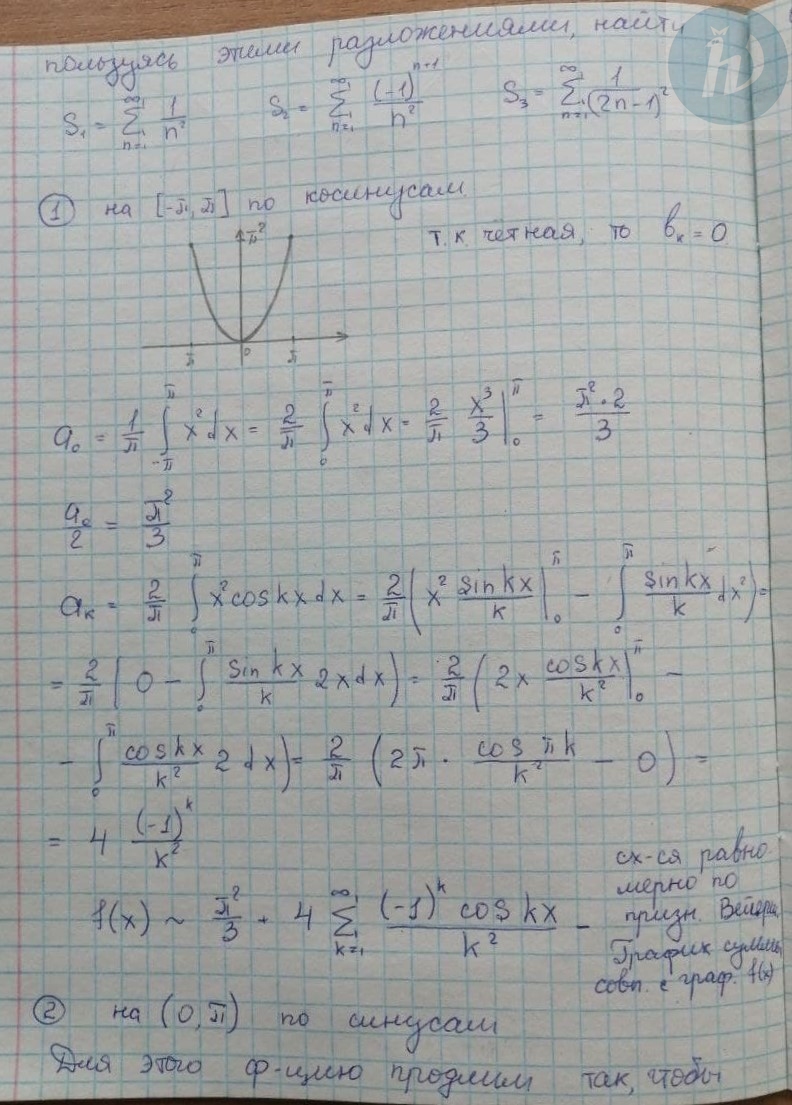 пользуясь этими разложениями, найти
S₁ = ∑_{n=1}^{∞} 1/n²  S₂ = ∑_{n=1}^{∞} (-1)^{n+1}/n²  S₃ = ∑_{n=1}^{∞} 1/(2n-1)²
① на [-π, π] по косинусам
π²
т.к. чётная, то bₖ = 0
π 0 π
a₀ = 1/π ∫_{-π}^{π} x² dx = 2/π ∫_0^π x² dx = 2/π x³/3 |_0^π = π²·2/3
a₀/2 = π²/3
aₖ = 2/π ∫_0^π x² cos kx dx = 2/π ( x² sin kx/k |_0^π - ∫_0^π sin kx/k dx² ) =
= 2/π ( 0 - ∫_0^π sin kx/k 2x dx ) = 2/π ( 2x cos kx/k² |_0^π -
- ∫_0^π cos kx/k² 2 dx ) = 2/π ( 2π · cos πk/k² - 0 ) =
= 4 (-1)^k/k²
f(x) ~ π²/3 + 4 ∑_{k=1}^{∞} (-1)^k cos kx/k² -
сх-ся равно
мерно по
призн. Вейерш
График суммы
совп. с граф. f(x)
② на (0, π) по синусам
Для этого ф-цию продлим так, чтобы